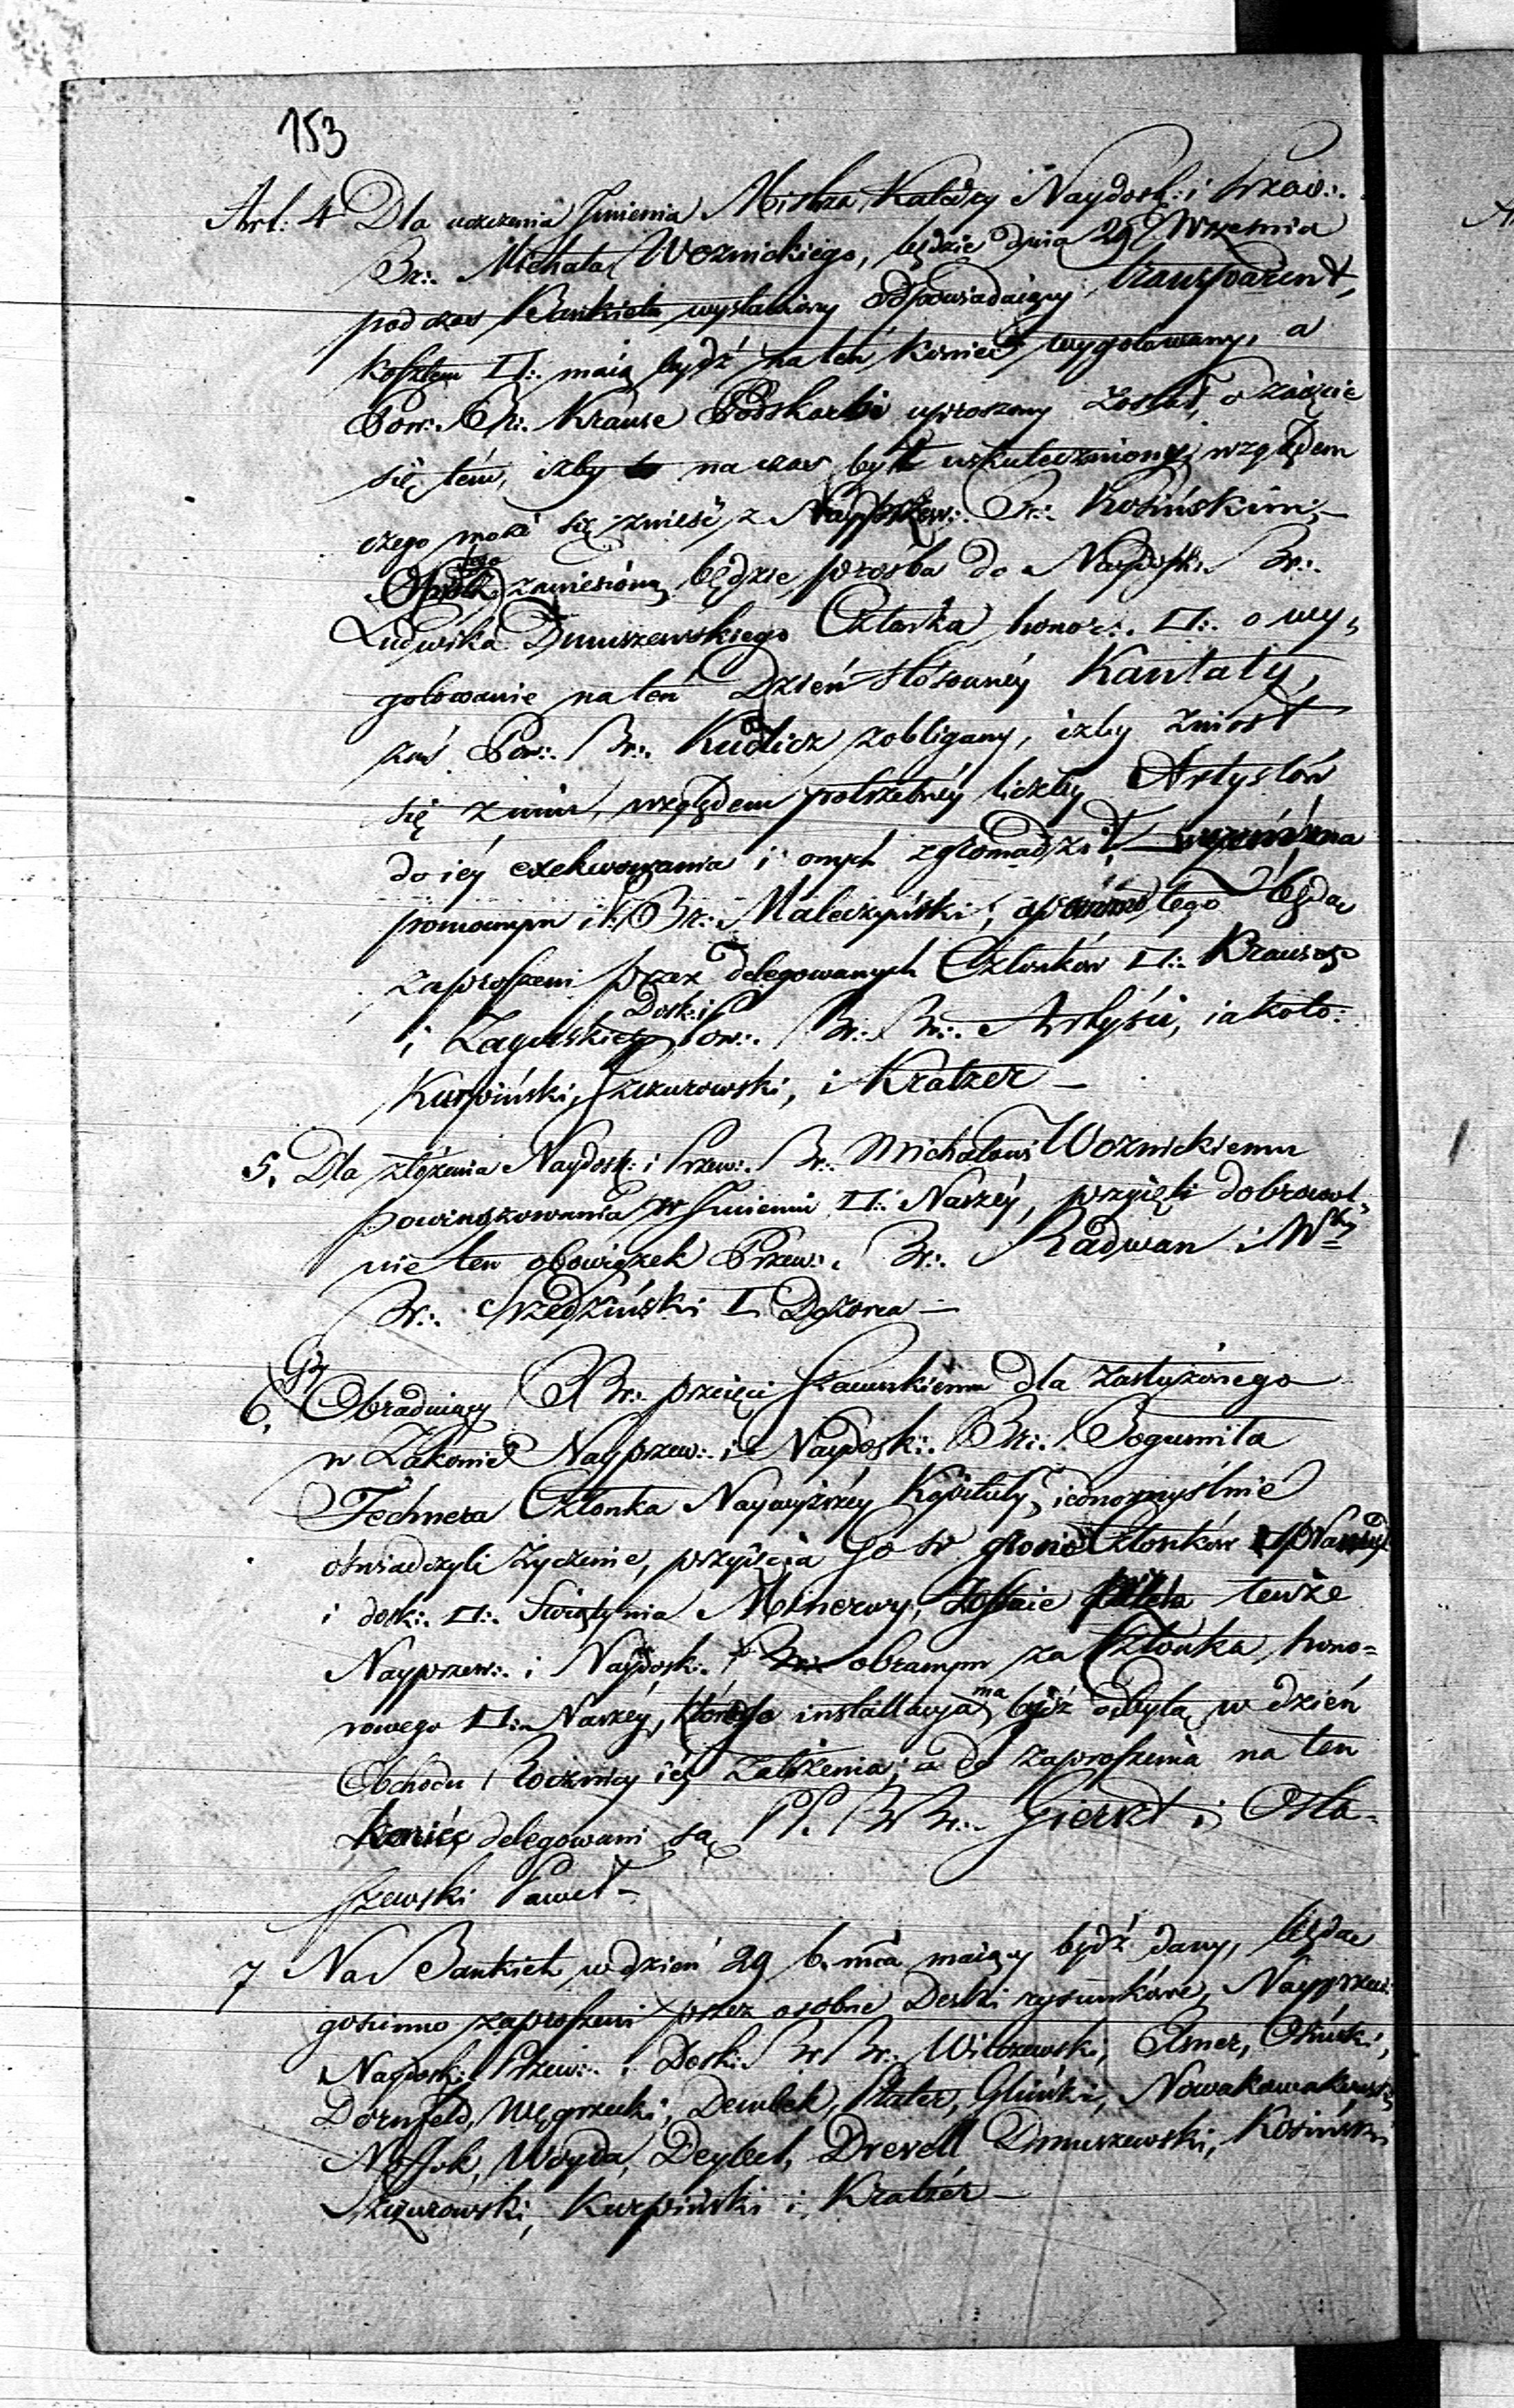 153
Art: 4 Dla uczczenia Jmienia Mistrza Katedry Naydosk: i Przew:.
Br:. Michała Woznickiego, będzie dnia 29 Września
podczas Bankietu wystawiony odpowiadaiący transparent,
kosztem □:. maią bydź na ten koniec wygotowany, a
Pow:. Br:. Krause Podskarbi uproszony został, o zaięcie
się tém, iżby na czas był uskuteczniony, względem
czego może się znieść z Nayprzew:. Br:. Kosińskim, –
zaniesiona będzie prośba do Naydosk:. Br:.
Ludwika Dmuszewskiego Członka honor:. □:. o wy,
gotowanie na ten Dzień stósownéy Kantaty,
zaś Pow:. Br:. Kudlicz zobligany, iżby zniosł
się z nim, względem potrzebnéy liczby Artystów
do iéy exekwowania i onych zgromadził,
pomocnym iest Br:. Maleczyński; tego będą
zaproszeni przez delegowanych Członków □:. Krausego
i Zagurskiego Dosk: i Pow:. Br:. Br:. Artyści, iakoto:
Kurpiński, Szczurowski, i Kratzer –
5. Dla złożenia Naydosk: i Przew:. Br:. Michałowi Woznickiemu
powinszowania w Jmieniu □:. Naszéy, przyięli dobrowol
nie ten obowiązek Przew:. Br:. Radwan i
Br:. Srzedziński I. Dozorca –
6. Obraduiący BBr:. przeięci szacunkiem dla zasłużonego
w Zakonie Nayprzew:. i Naydosk:. Br:. Bogumiła
Technera Członka Naywyższéy Kapituły, iednomyślnie
oświadczyli życzenie, przyięcia Go w grono Członków
i dosk:. □:. Swiątynia Minerwy, zostaie tenże
Nayprzew:. i Naydosk:. obranym za Członka hono=
rowego □:. Naszéy, którego installacya ma bydź odbyta w dzień
Obchodu Rocznicy iéy Założenia; a do zaproszenia na ten
koniec delegowani są PP. BBr:. Gierszt i Osta=
szewski Paweł –
7 Na Bankiet w dzień 29 b. mca maiący bydź dany, będą
gościnno zaproszeni przez osobne Deski rysunkowe, Nayprzew:
Naydosk: Przew:. i Dosk:. BBr:. Wilczewski, Elsner, Osiński,
Dornfeld, Węgrzecki, Dembek, Plater, Gliński,
Woyda, Deybel, Drevell, Dmuszewski, Kosiński
Szczurowski, Kurpiński i Kratzer –